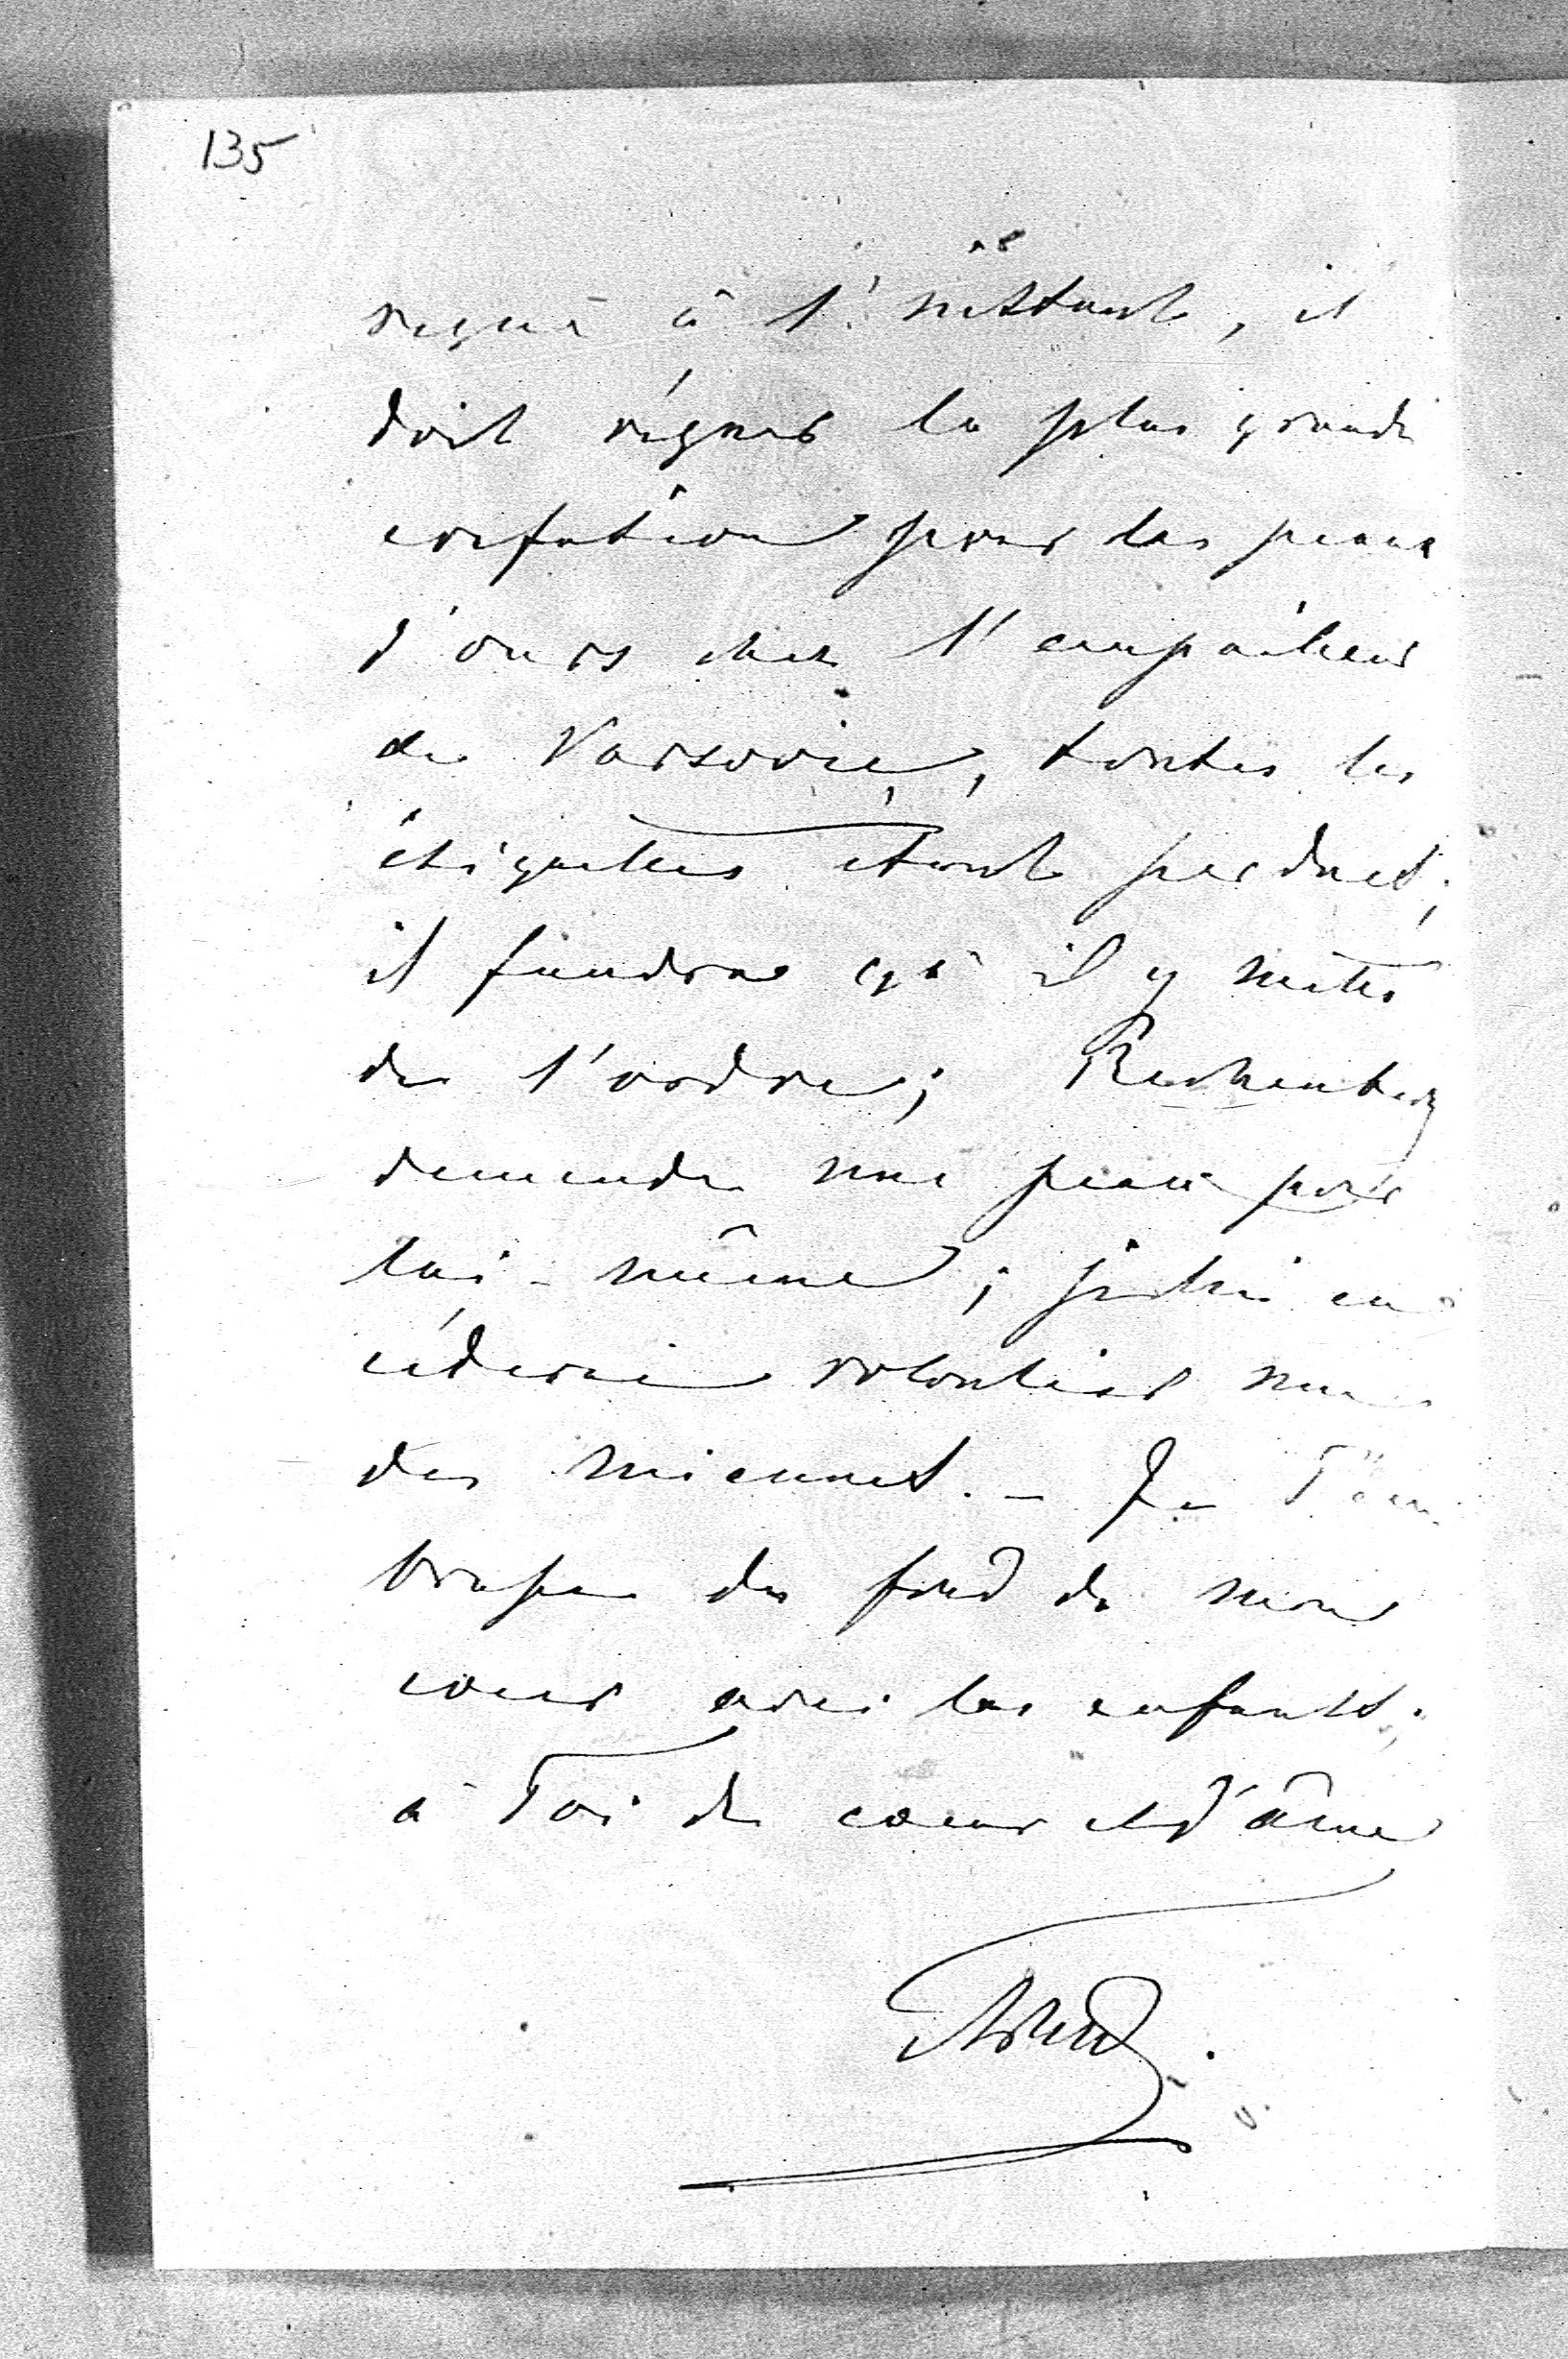 135
reçue à l'instant, il
doit régner la plus grande
confusion pour les peaux
d'ours chez l'empailleur
de Varsovie, toutes les
étiquettes étant perdues;
il faudra qu'il y mette
de l'ordre; Rechenberg
demande une peau pour
lui-même; je lui en
céderai volontiers une
des miennes. – Je T'em
brasse du fond de mon
cœur avec les enfants;
à Toi de cœur et d'âme